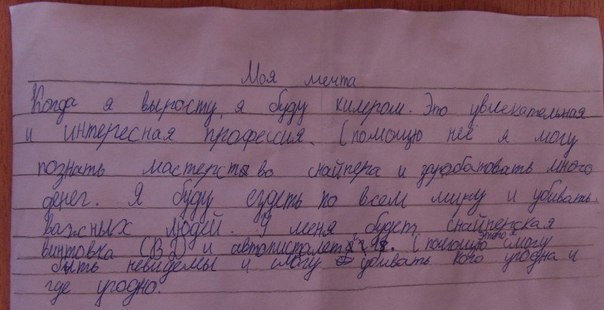 Моя мечта
Когда я выросту, я буду килером. Это увлекательная
и интересная професcия. С помощю нее я могу
познать мастерство снайпера и зарабатовать много
денег. Я буду ездеть по всем миру и убивать
важных людей. У меня будет снайперская
винтовка (В) и автописполет. С помощью этого смогу
быть невидемы и смогу убивать кого угодна и
где угодно.